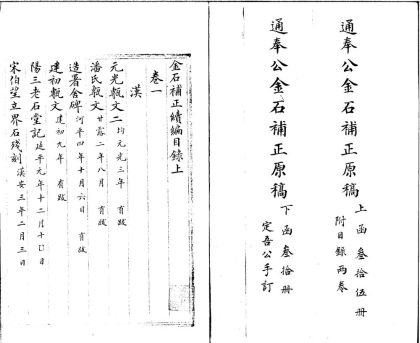 通奉公金石補正原稿
上函叁拾伍册
附目錄兩卷
通奉公金石補正原稿
下函叁拾册
定吾公手訂
金石補正續編目錄上
卷一
漢
元光甎文二 均元光三年 有跋
潘氏甎文 甘露二年八月 有跋
造署舍碑 河平四年十月六日 有跋
建初甎文 建初九年 有跋
陽三老石堂記 延平元年十二月十〇日
宋伯望立界石殘刻 漢安三年二月三日